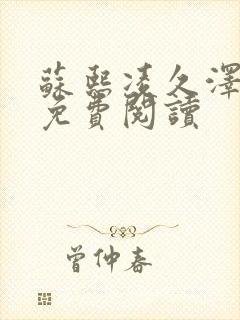 蘇熙凌久澤
免費閱讀
曾仲春